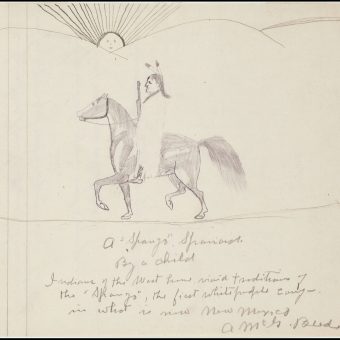 A "Spanyo" Spaniard
By a child
Indians of the West have vivid traditions of
the "Spanyo", the first white people coming
in what is now New Mexico
A McG. Beede